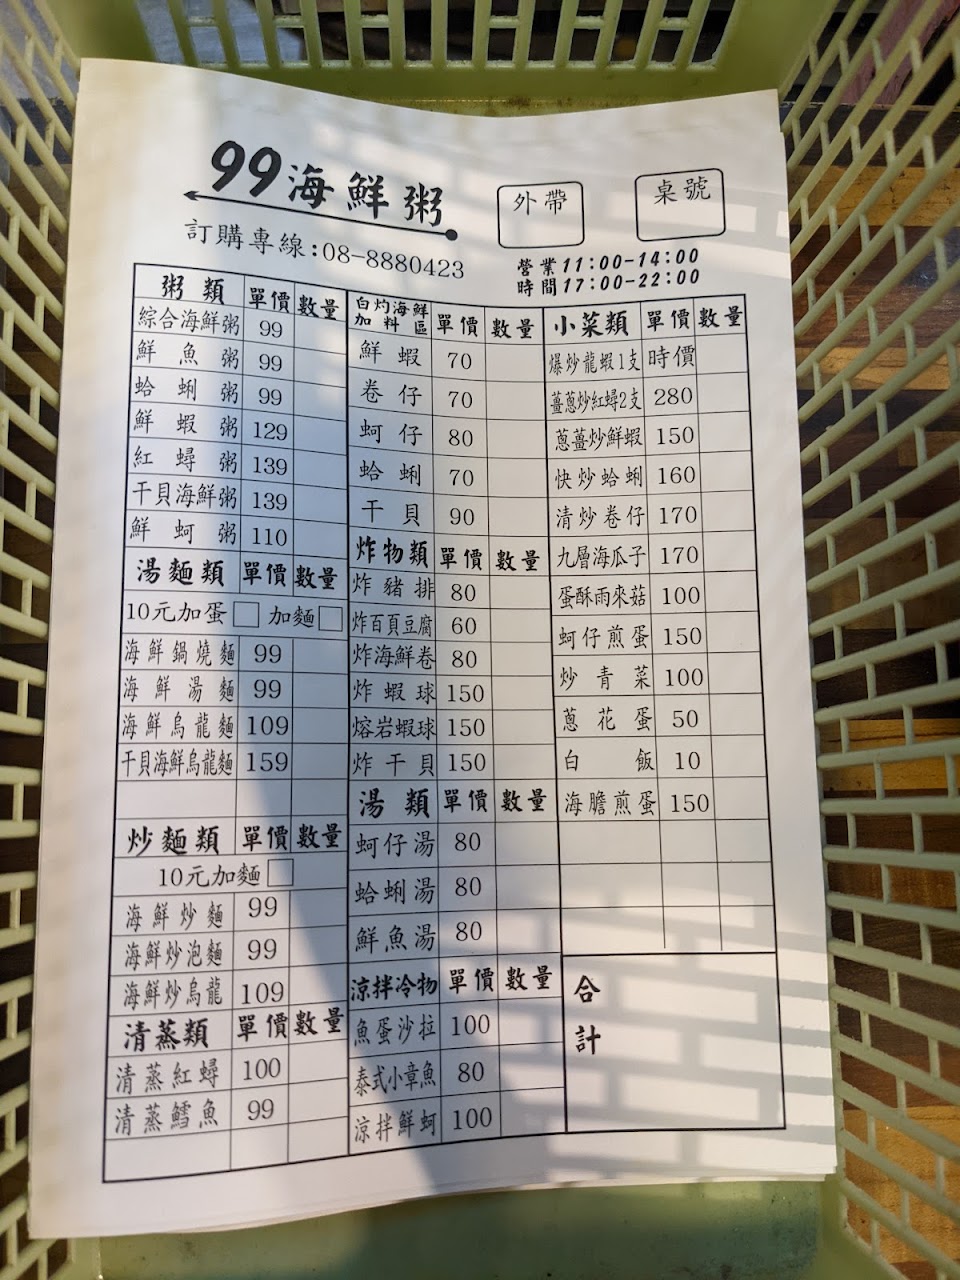 99海鮮粥
外帶
桌號
訂購專線:08-8880423
營業 11:00-14:00
時間 17:00-22:00
粥類 單價 數量
綜合海鮮粥 99
鮮魚粥 99
蛤蜊粥 99
鮮蝦粥 129
紅蟳粥 139
干貝海鮮粥 139
鮮蚵粥 110
湯麵類 單價 數量
10元加蛋 □ 加麵 □
海鮮鍋燒麵 99
海鮮湯麵 99
海鮮烏龍麵 109
干貝海鮮烏龍麵 159
炒麵類 單價 數量
10元加麵 □
海鮮炒麵 99
海鮮炒泡麵 99
海鮮炒烏龍 109
清蒸類 單價 數量
清蒸紅蟳 100
清蒸鱈魚 99
白灼海鮮
加料區 單價 數量
鮮蝦 70
卷仔 70
蚵仔 80
蛤蜊 70
干貝 90
炸物類 單價 數量
炸豬排 80
炸百頁豆腐 60
炸海鮮卷 80
炸蝦球 150
熔岩蝦球 150
炸干貝 150
湯類 單價 數量
蚵仔湯 80
蛤蜊湯 80
鮮魚湯 80
涼拌冷物 單價 數量
魚蛋沙拉 100
泰式小章魚 80
涼拌鮮蚵 100
小菜類 單價 數量
爆炒龍蝦1支 時價
薑蔥炒紅蟳2支 280
蔥薑炒鮮蝦 150
快炒蛤蜊 160
清炒卷仔 170
九層海瓜子 170
蛋酥雨來菇 100
蚵仔煎蛋 150
炒青菜 100
蔥花蛋 50
白飯 10
海膽煎蛋 150
合計